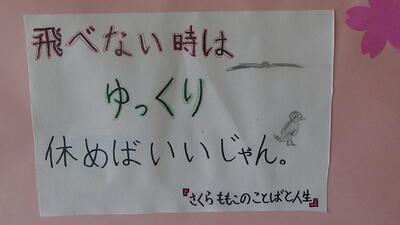 飛べない時は
ゆっくり
休めばいいじゃん。
『さくらももこのことばと人生』